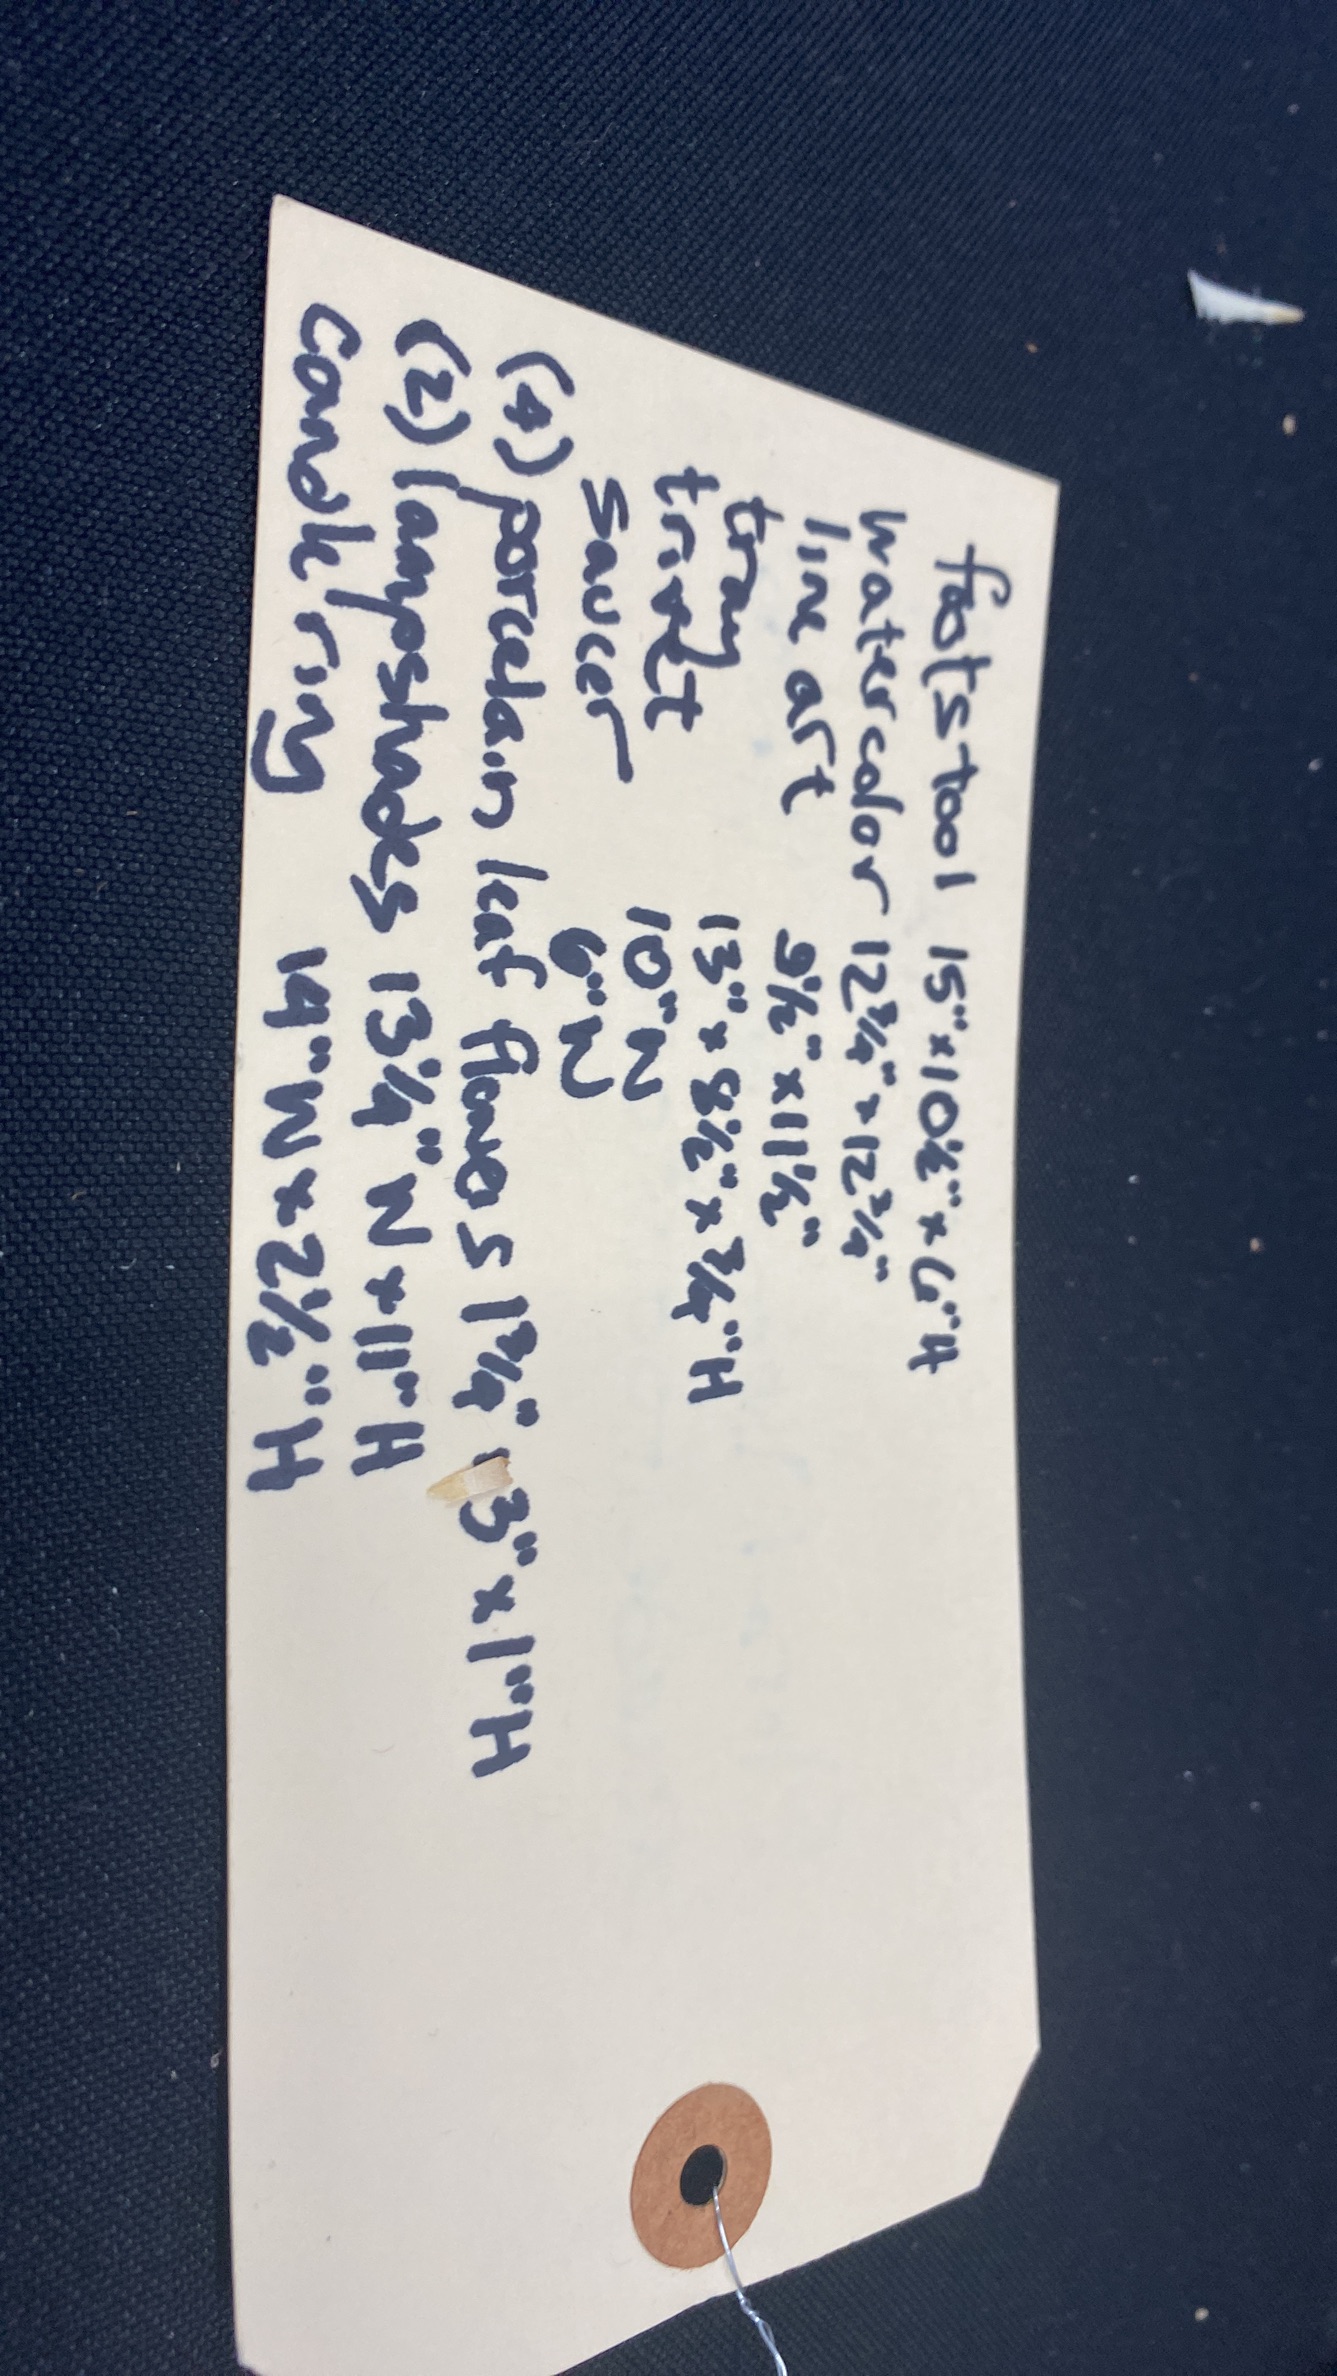 footstool 15" x 10½" x 6" H
watercolor 12¾" x 12¾"
line art 9½" x 11½"
tray 13" x 8½" x ¾" H
trivet 10" W
saucer 6" W
(4) porcelain leaf flowers 1¾" 3" x 1" H
(2) lampshades 13¼" W x 11" H
candle ring 14" W x 2½" H